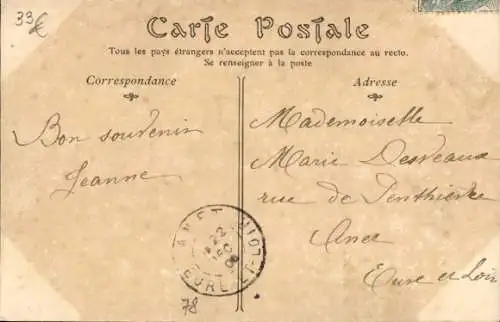 33€
Carte Postale
Tous les pays étrangers n'acceptent pas la correspondance au recto.
Se renseigner à la poste
Correspondance
Adresse
Bon souvenir
Jeanne
Mademoiselle
Marie Desveaux
rue de Penthièvre
Anet
Eure et Loir
ANET
EURE-ET-LOIR
22
78